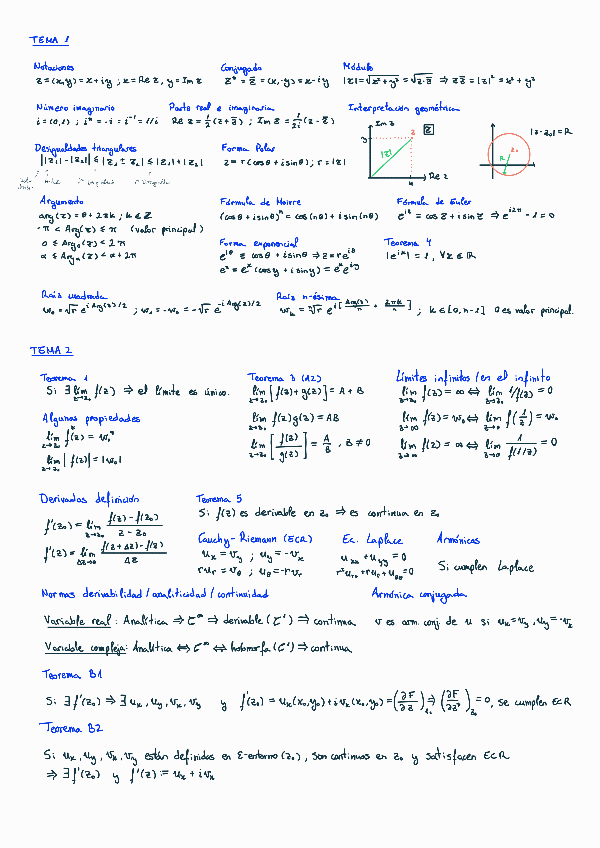 TEMA 1
Notaciones
z = (x,y) = x + iy ; x = Re z, y = Im z
Conjugado
z* = z̄ = (x,-y) = x - iy
Módulo
|z| = √(x²+y²) = √(z·z̄) ⇒ z z̄ = |z|² = x² + y²
Número imaginario
i = (0,1) ; i* = -i = i⁻¹ = 1/i
Parte real e imaginaria
Re z = 1/2 (z + z̄) ; Im z = 1/2i (z - z̄)
Interpretación geométrica
Im z
y
z
|z|
x
Re z
z
z₀
R
|z - z₀| = R
Desigualdades triangulares
||z₁| - |z₂|| ≤ |z₁ ± z₂| ≤ |z₁| + |z₂|
Forma Polar
z = r(cosθ + i sinθ) ; r = |z|
Argumento
arg(z) = θ + 2πk ; k ∈ Z
-π < Arg(z) ≤ π (valor principal)
0 ≤ Arg₀(z) < 2π
α ≤ Argα(z) < α + 2π
Fórmula de Moivre
(cosθ + i sinθ)ⁿ = cos(nθ) + i sin(nθ)
Fórmula de Euler
e^{iz} = cos z + i sin z ⇒ e^{i2π} - 1 = 0
Forma exponencial
e^{iθ} = cosθ + i sinθ ⇒ z = re^{iθ}
e^z = e^x (cos y + i sin y) = e^x e^{iy}
Teorema 4
|e^{ix}| = 1, ∀x ∈ R
Raíz cuadrada
w₀ = √r e^{i Arg(z)/2} ; w₁ = -w₀ = -√r e^{i Arg(z)/2}
Raíz n-ésima
wₖ = ⁿ√r e^{i[Arg(z)/n + 2πk/n]} ; k ∈ [0, n-1] 0 es valor principal.
TEMA 2
Teorema 1
Si ∃ lím_{z→z₀} f(z) ⇒ el límite es único.
Algunas propiedades
lím_{z→z₀} f*(z) = w₀*
lím_{z→z₀} |f(z)| = |w₀|
Teorema 3 (A2)
lím_{z→z₀} [f(z) + g(z)] = A + B
lím_{z→z₀} f(z)g(z) = AB
lím_{z→z₀} [f(z)/g(z)] = A/B , B ≠ 0
Límites infinitos / en el infinito
lím_{z→z₀} f(z) = ∞ ⇔ lím_{z→z₀} 1/f(z) = 0
lím_{z→∞} f(z) = w₀ ⇔ lím_{z→0} f(1/z) = w₀
lím_{z→∞} f(z) = ∞ ⇔ lím_{z→0} 1/f(1/z) = 0
Derivadas definición
f'(z₀) = lím_{z→z₀} (f(z) - f(z₀))/(z - z₀)
f'(z) = lím_{Δz→0} (f(z+Δz) - f(z))/Δz
Teorema 5
Si f(z) es derivable en z₀ ⇒ es continua en z₀
Cauchy - Riemann (ECR)
uₓ = v_y ; u_y = -vₓ
ru_r = v_θ ; u_θ = -rv_r
Ec. Laplace
uₓₓ + u_yy = 0
r²u_rr + ru_r + u_θθ = 0
Armónicas
Si cumplen Laplace
Normas derivabilidad / analiticidad / continuidad
Variable real : Analítica ⇒ C^∞ ⇒ derivable (C¹) ⇒ continua
Variable compleja: Analítica ⇔ C^∞ ⇔ holomorfa (C¹) ⇒ continua
Armónica conjugada
v es arm. conj. de u si uₓ = v_y , u_y = -vₓ
Teorema B1
Si ∃ f'(z₀) ⇒ ∃ uₓ, u_y, vₓ, v_y y f'(z₀) = uₓ(x₀,y₀) + ivₓ(x₀,y₀) = (∂F/∂z)_{z₀} ⇒ (∂F/∂z*)_{z₀} = 0, se cumplen ECR
Teorema B2
Si uₓ, u_y, vₓ, v_y están definidas en ε-entorno (z₀), son continuas en z₀ y satisfacen ECR
⇒ ∃ f'(z₀) y f'(z) = uₓ + ivₓ